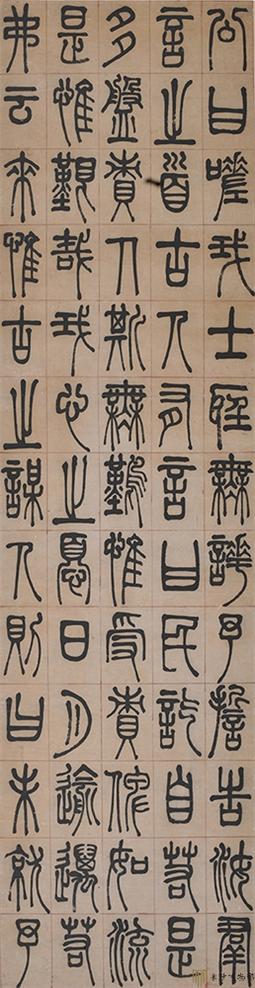 公曰嗟我士聽無譁予誓告汝群
言之首古人有言曰民訖自若是
多盤責人斯無難惟受責俾如流
是惟艱哉我心之憂日月逾邁若
弗云來惟古之謀人則曰未就予